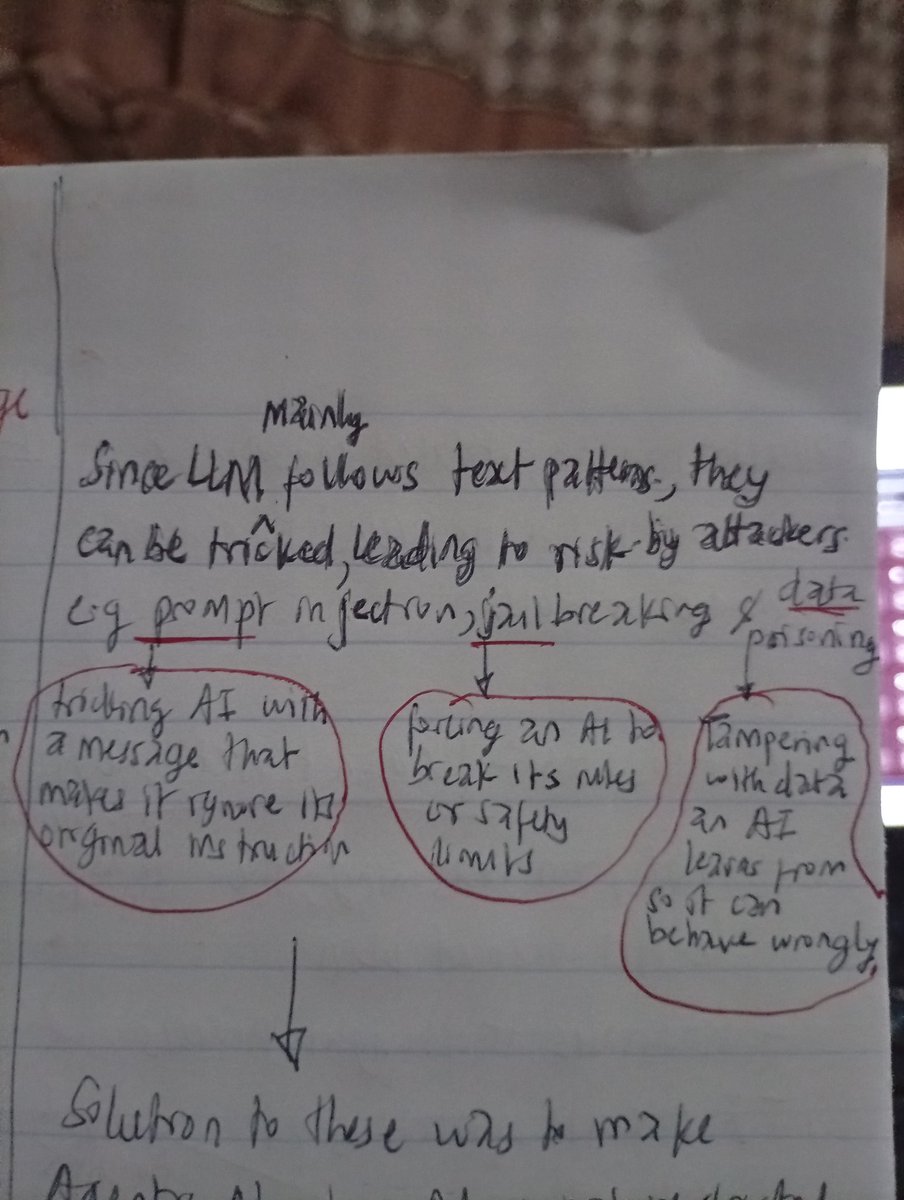 mainly
Since LLM follows text patterns, they
can be tricked, leading to risk by attackers.
e.g prompt injection, jail breaking & data
poisoning
tricking AI with
a message that
makes it ignore its
original instruction
forcing an AI to
break its rules
or safety
limits
Tampering
with data
an AI
learns from
so it can
behave wrongly
Solution to these was to make